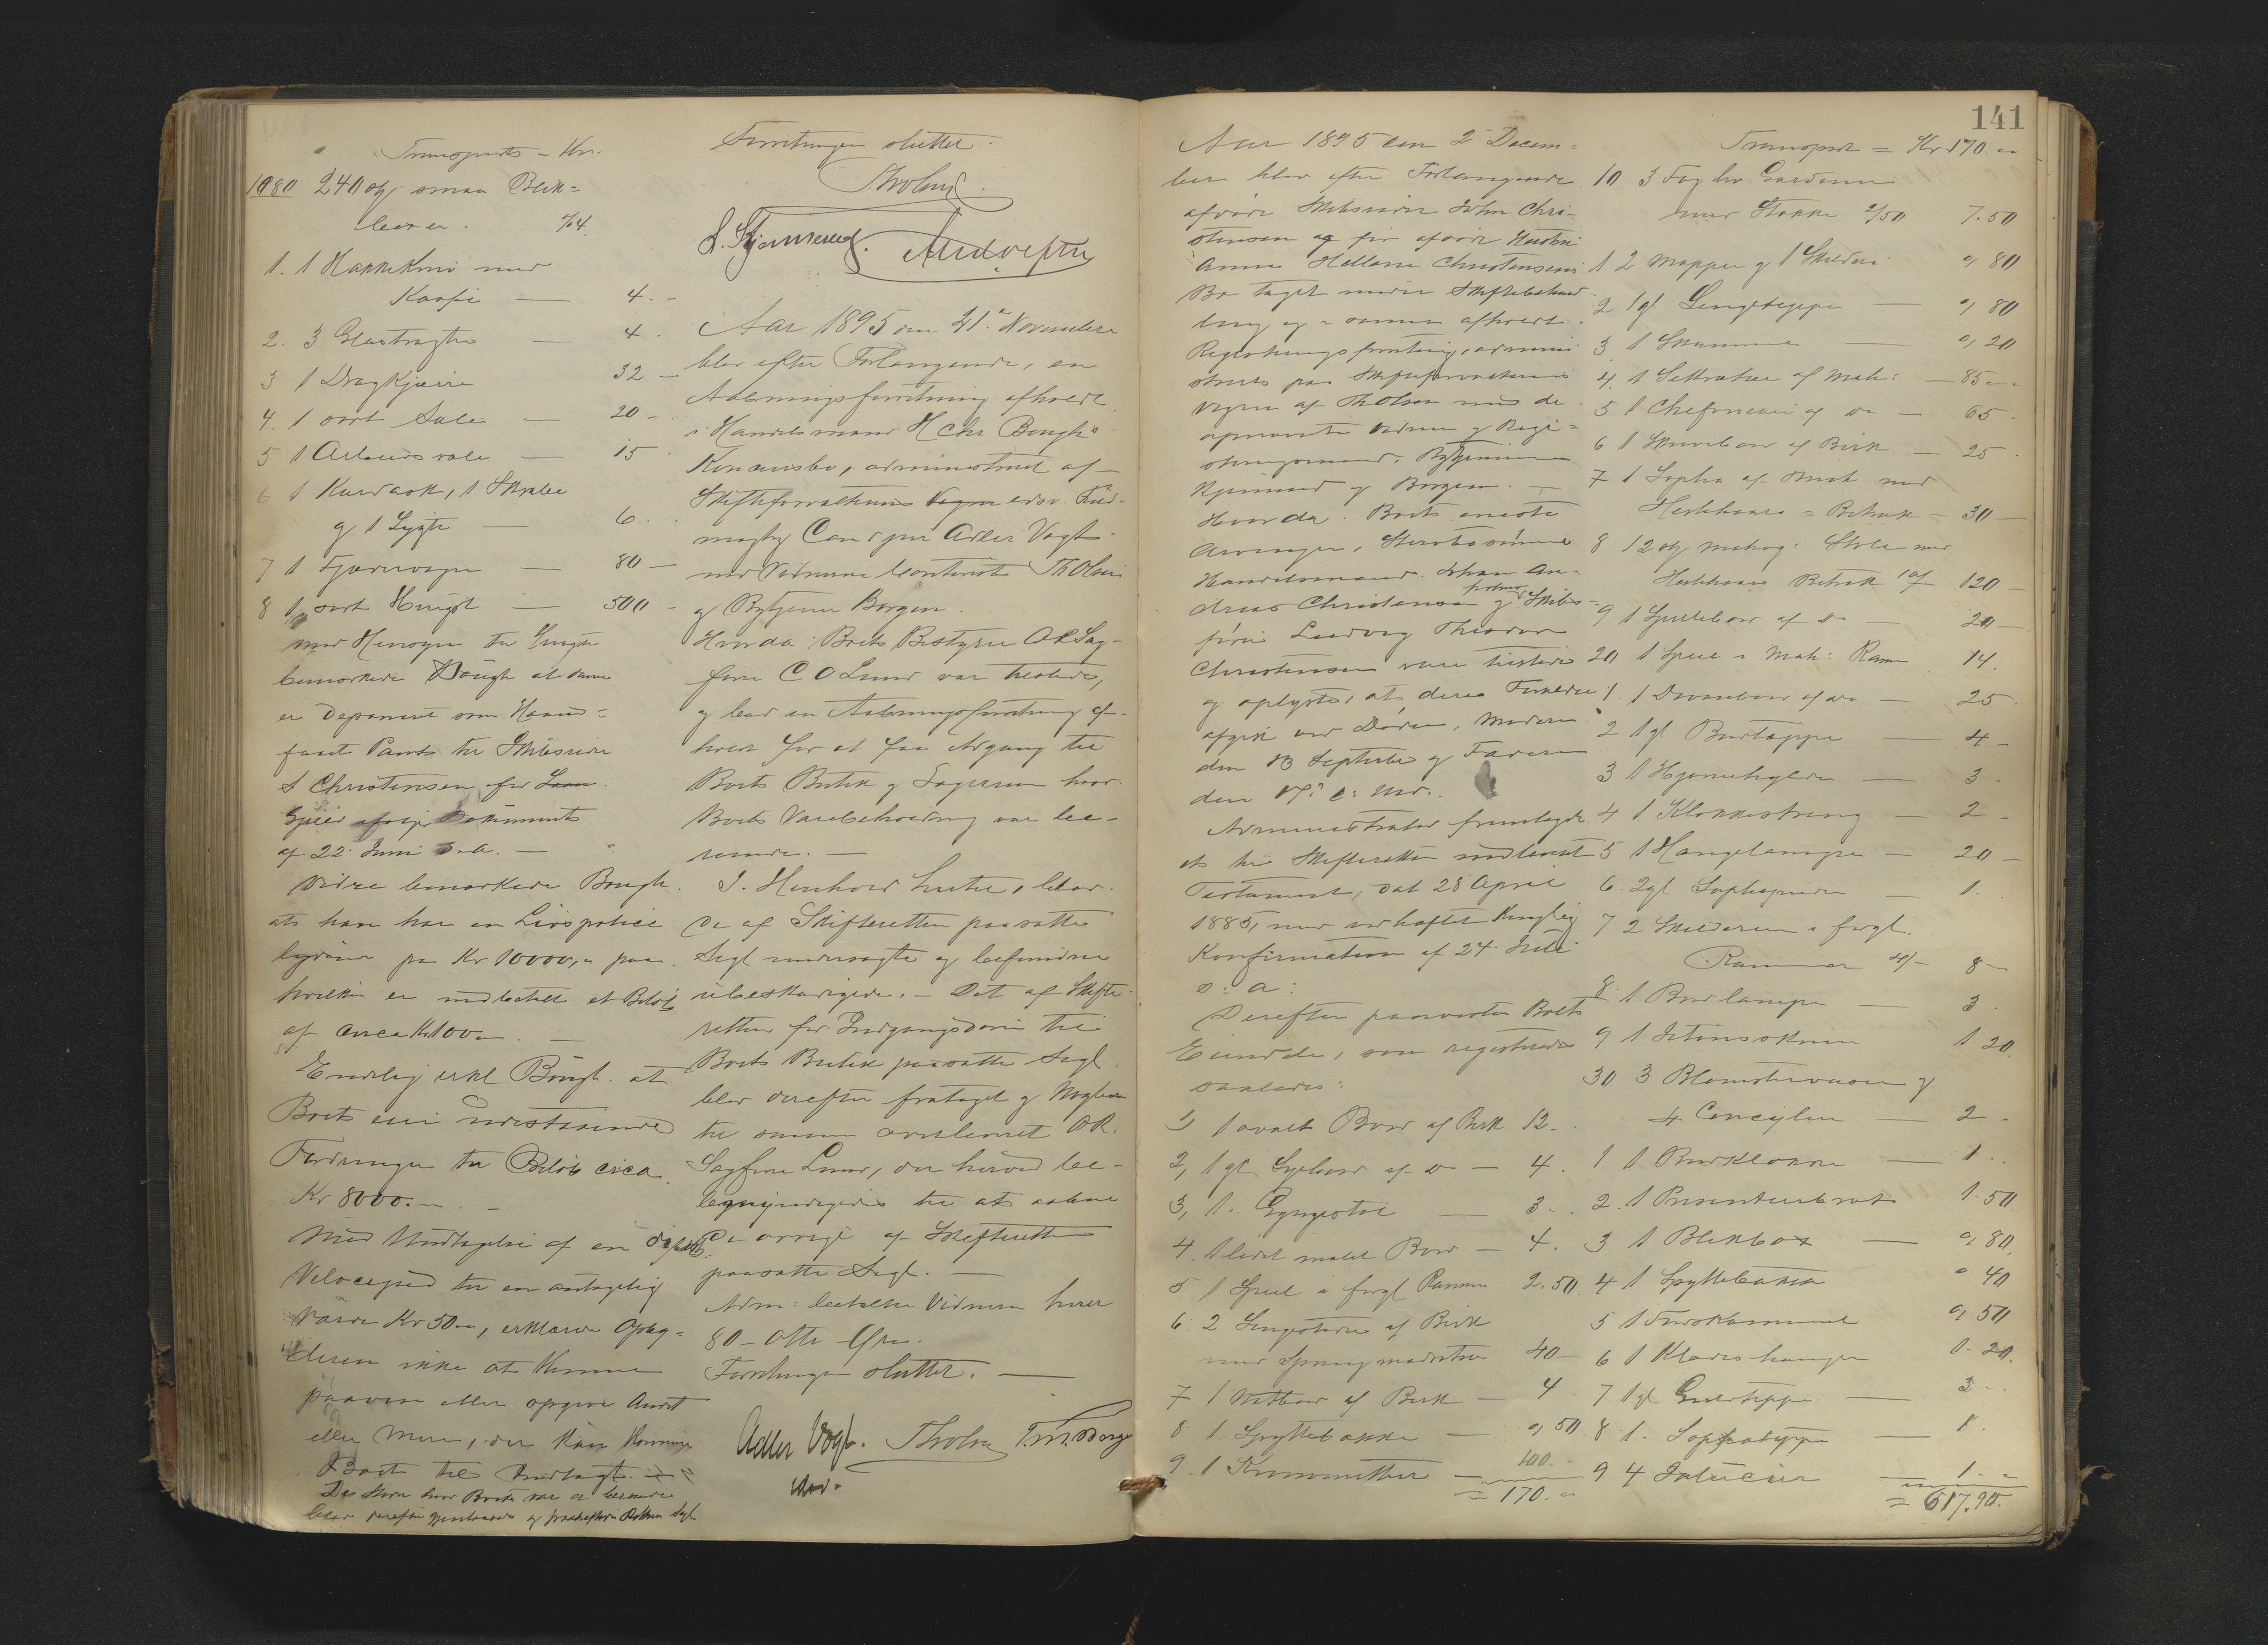 Transport = Kr.
1080 240 stk smaa Blik-
bøxer. 4/4.
1. 1 Hakkekniv med
4.-
2. 3 Glastragter — 4.
3 1 Dragkjærre 32 —
4. 1 sort Sale — 20 -
5 1 Arbeidssale — 15
6 1 Kurvask, 1 Skralle
og 1 Lygte — 6.
7 1 Fjærvogn — 80 —
8 1 sort Hingst — 500 -
med Hensyn til Hingsten
bemærkede Bough at denne
er deponeret som Haand-
faaet Pant til Skibsreder
S Christensen for Laan
af 22 Juni d. a. —
Vidre bemærkede Bough
at han har en Livspolice
lydende paa Kr 10000,- paa
hvilken er indbetalt et Beløb
af circa Kr 100 —
Endelig erkl Bough. at
Boets eie udestaaende
Fordringer til Beløb circa
Kr 8000. —
Med Undtagelse af en
Velociped til en antagelig
Værdi Kr 50 —, erklærede
ikke at kunne
paavise eller opgive Andet
eller Mere, der kan komme
Boet til Indtægt. —
blev derefter
Forretningen sluttet.
Th Olsen
Aar 1895 den 21de November
blev efter Forlangende, en
Aabningsforretning afholdt
i Handelsmand H Chr Bough's
Konkursbo, administreret af
Skifteforvalterens edsv. Fuld-
mægtig Cand jur Adler Vogt
med Vidnerne Contorist Th Olsen
og Bytjener Borgen.
Hvorda: Boets Bestyrer OR Sag-
fører C O Lund var tilstede,
og bad en Aabningsforretning af-
holdt for at faa Adgang til
Boets Butik og Lagerrum hvor
Boets Varebeholdning var be-
roende. —
I Henhold hertil, blev
de af Skifteretten paasatte
Segl undersøgte og befundne
ubeskadigede. — Det af Skifte-
retten for Indgangsdøren til
Boets Butik paasatte Segl
blev derefter frataget og Nøglen
til samme overleveret OR.
Sagfører Lund, der herved be-
til at aabne
de øvrige af Skifteretten
paasatte Segl. —
Adm: betalte Vidnerne hver
80 - Otti Øre.
Forretningen sluttet. —
Adler Vogt. Th Olsen
141
Aar 1895 den 2 Decem-
ber blev efter Forlangende
afdøde Skibsreder John Chri-
stensen og før afdøde Hustru
Anne Christensens
Bo taget under Skiftebehand-
ling og i samme afholdt
Registreringsforretning, admini-
streret paa Skifteforvalterens
Vegne af Th Olsen med de
opnævnte Vidner og Regi-
streringsmænd, Bytjenerne
og Borgen. —
Hvorda: Boets eneste
Arvinger, Sterbosønnerne
Handelsmand Johan An-
dreas Christensen og Skibs-
fører Ludvig Theodor
Christensen vare tilstede
og oplyste, at deres Forældre
afgik ved Døden, Moderen
den 13 September og Faderen
den 17de f. Md.
Administrator fremlagde
et til Skifteretten indleveret
Testament, dat 28 April
1885, med vedhæftet Kongelig
Konfirmation af 24 Juli
s: a:
Derefter paavistes Boets
Eiendele, som registreredes
saaledes:
1, 1 ovalt Bord af Birk 12 -
2, 1 gl. Sybord af do — 4.
3, 1 Gyngestol — 3 -
4. 1 lidet malet Bord — 4.
5 1 Speil i forgl Ramme 2.50
6. 2 Sengesteder af Birk
med Springmadratser 40 -
7 1 Natbord af Birk — 4.
8 1 Spyttebakke — ,50
9 1 Kronometer — 100. -
= 170. -
Transport = Kr 170. -
10 3 Fag hv. Gardiner
med Stokke 2/50 7.50
1 2 Mapper og 1 Skilderi ,80
2 1 gl Sengeteppe — ,80
3 1 Skammel — ,20
4. 1 Sekretær af Mah: — 85 -
5 1 Chefonieri af do — 65 -
6 1 Skrivebord af Birk — 25 -
7 1 Sopha af Birk med
Hestehaars = Betræk — 30 —
8 12 stk Mahog: Stole med
Hestehaars Betræk 10/ 120 -
9 1 Spillebord af do — 20 —
20 1 Speil i Mah: Ramme 14.
1. 1 Divanbord af do — 25.
2 1 gl Bordteppe — 4 -
3 1 Hjørnehylde — 3 -
4 1 Klokkestreng — 2 -
5 1 Hængelampe — 20 —
6 2 gl Sophapuder — 1.
7 2 Skilderier i forgl.
Rammer 4/- 8 -
8. 1 Bordlampe — 3.
9 1 1.20
30 3 Blomstervaser og
4 Conkylier — 2 -
1 1 Bordklokke — 1 -
2. 1 Presenterbret 1.50
3 1 Blikbox — ,80
4 1 Spyttebakke ,40
5 1 ,50
6 1 Klædeshænger 1.20
7 1 gl Gulvteppe — 3 -
8 1. Sophateppe — 1.
9 4 Jalucier — 1 -
= 617.90.